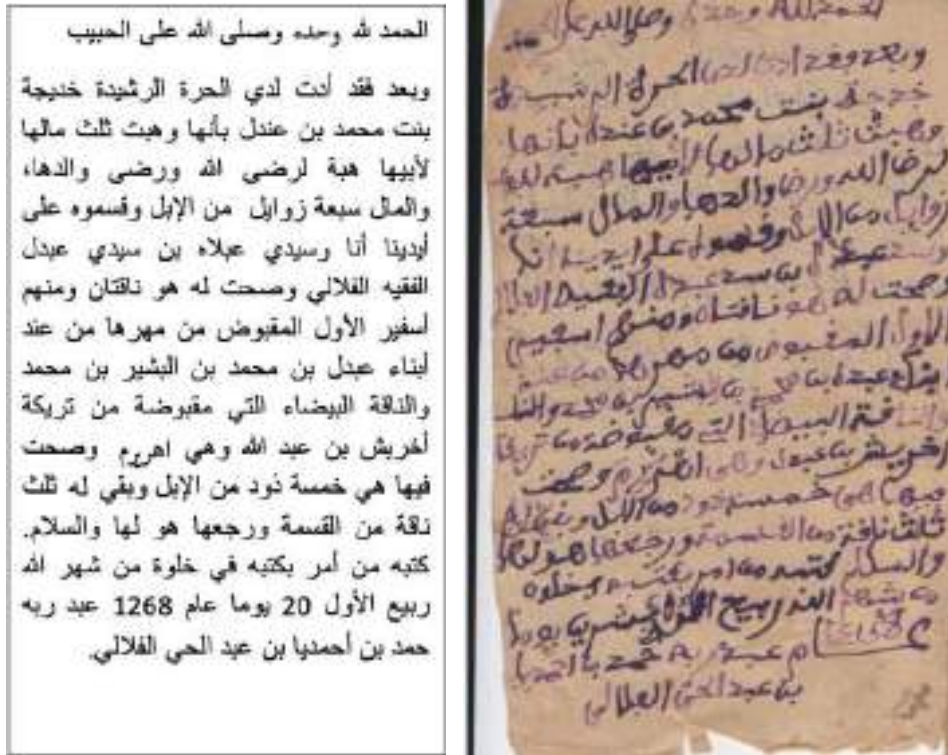 الحمد لله وحده وصلى الله على الحبيب
وبعد فقد أدت لدي الحرة الرشيدة خديجة
بنت محمد بن عندل بأنها وهبت ثلث مالها
لأبيها هبة لرضى الله ورضى والدها،
والمال سبعة زوايل من الإبل وقسموه على
أيدينا أنا وسيدي عبلاه بن سيدي عبدل
الفقيه الفلالي وصحت له هو ناقتان ومنهم
أسفير الأول المقبوض من مهرها من عند
أبناء عبدل بن محمد بن البشير بن محمد
والناقة البيضاء التي مقبوضة من تريكة
أخريش بن عبد الله وهي اهريم وصحت
فيها هي خمسة ذود من الإبل وبقي له ثلث
ناقة من القسمة ورجعها هو لها والسلام.
كتبه من أمر بكتبه في خلوة من شهر الله
ربيع الأول 20 يوما عام 1268 عبد ربه
حمد بن أحمديا بن عبد الحي الفلالي.
الحمد لله وحده وصلى الله على
وبعد وفقد ادت لدي الحرة الرشيدة
خديجة بنت محمد بن عندل بأنها
وهبت ثلث مالها لأبيها هبة
لرضا الله ورضا والدها والمال سبعة
زوايل من الإبل وقسموه على ايدينا انا
بن سيد عبدل الفقيه
وصحت له هو ناقتان ومنهم اسفير
الأول المقبوض من مهرها من عند
محمد بن البشير بن محمد
الناقة البيضاء التي مقبوضة من تريكة
اخريش بن عبدل وهي وصحت
فيها هي خمسة ذود من الإبل وبقي له
ثلث ناقة من القسمة ورجعها هو لها
والسلام كتبه من امر بكتبه في خلوة
من شهر الله ربيع الأول عشرين يوما
عام عبد ربه حمد بن احمديا
بن عبد الحي الفلالي